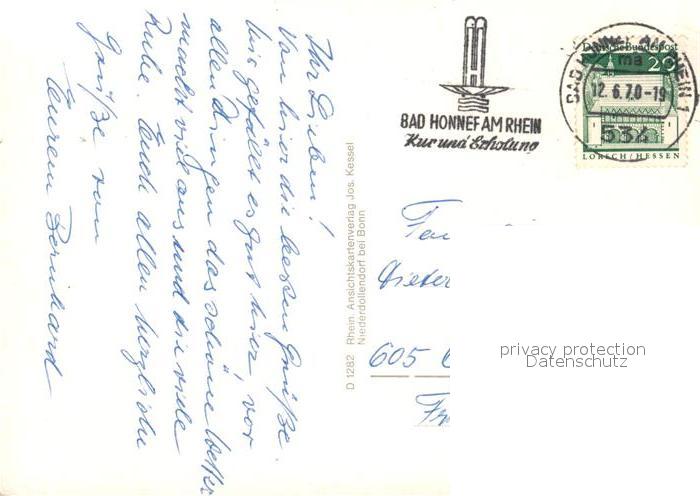 Ihr Lieben!
Von hier die besten Grüße.
Mir gefällt es gut hier, vor
allen Dingen das schöne Wetter
macht viel aus und die viele
Ruhe. Euch allen herzliche
Grüße von
Euren Bernhard
D 1282 Rhein. Ansichtskartenverlag Jos. Kessel
Niederdollendorf bei Bonn
BAD HONNEF AM RHEIN
Kur und Erholung
Deutsche Bundespost
20
LORSCH/HESSEN
BAD HONNEF AM RHEIN 1
ma
12.6.70-19
534
Fa
Dieter
605
privacy protection
Datenschutz